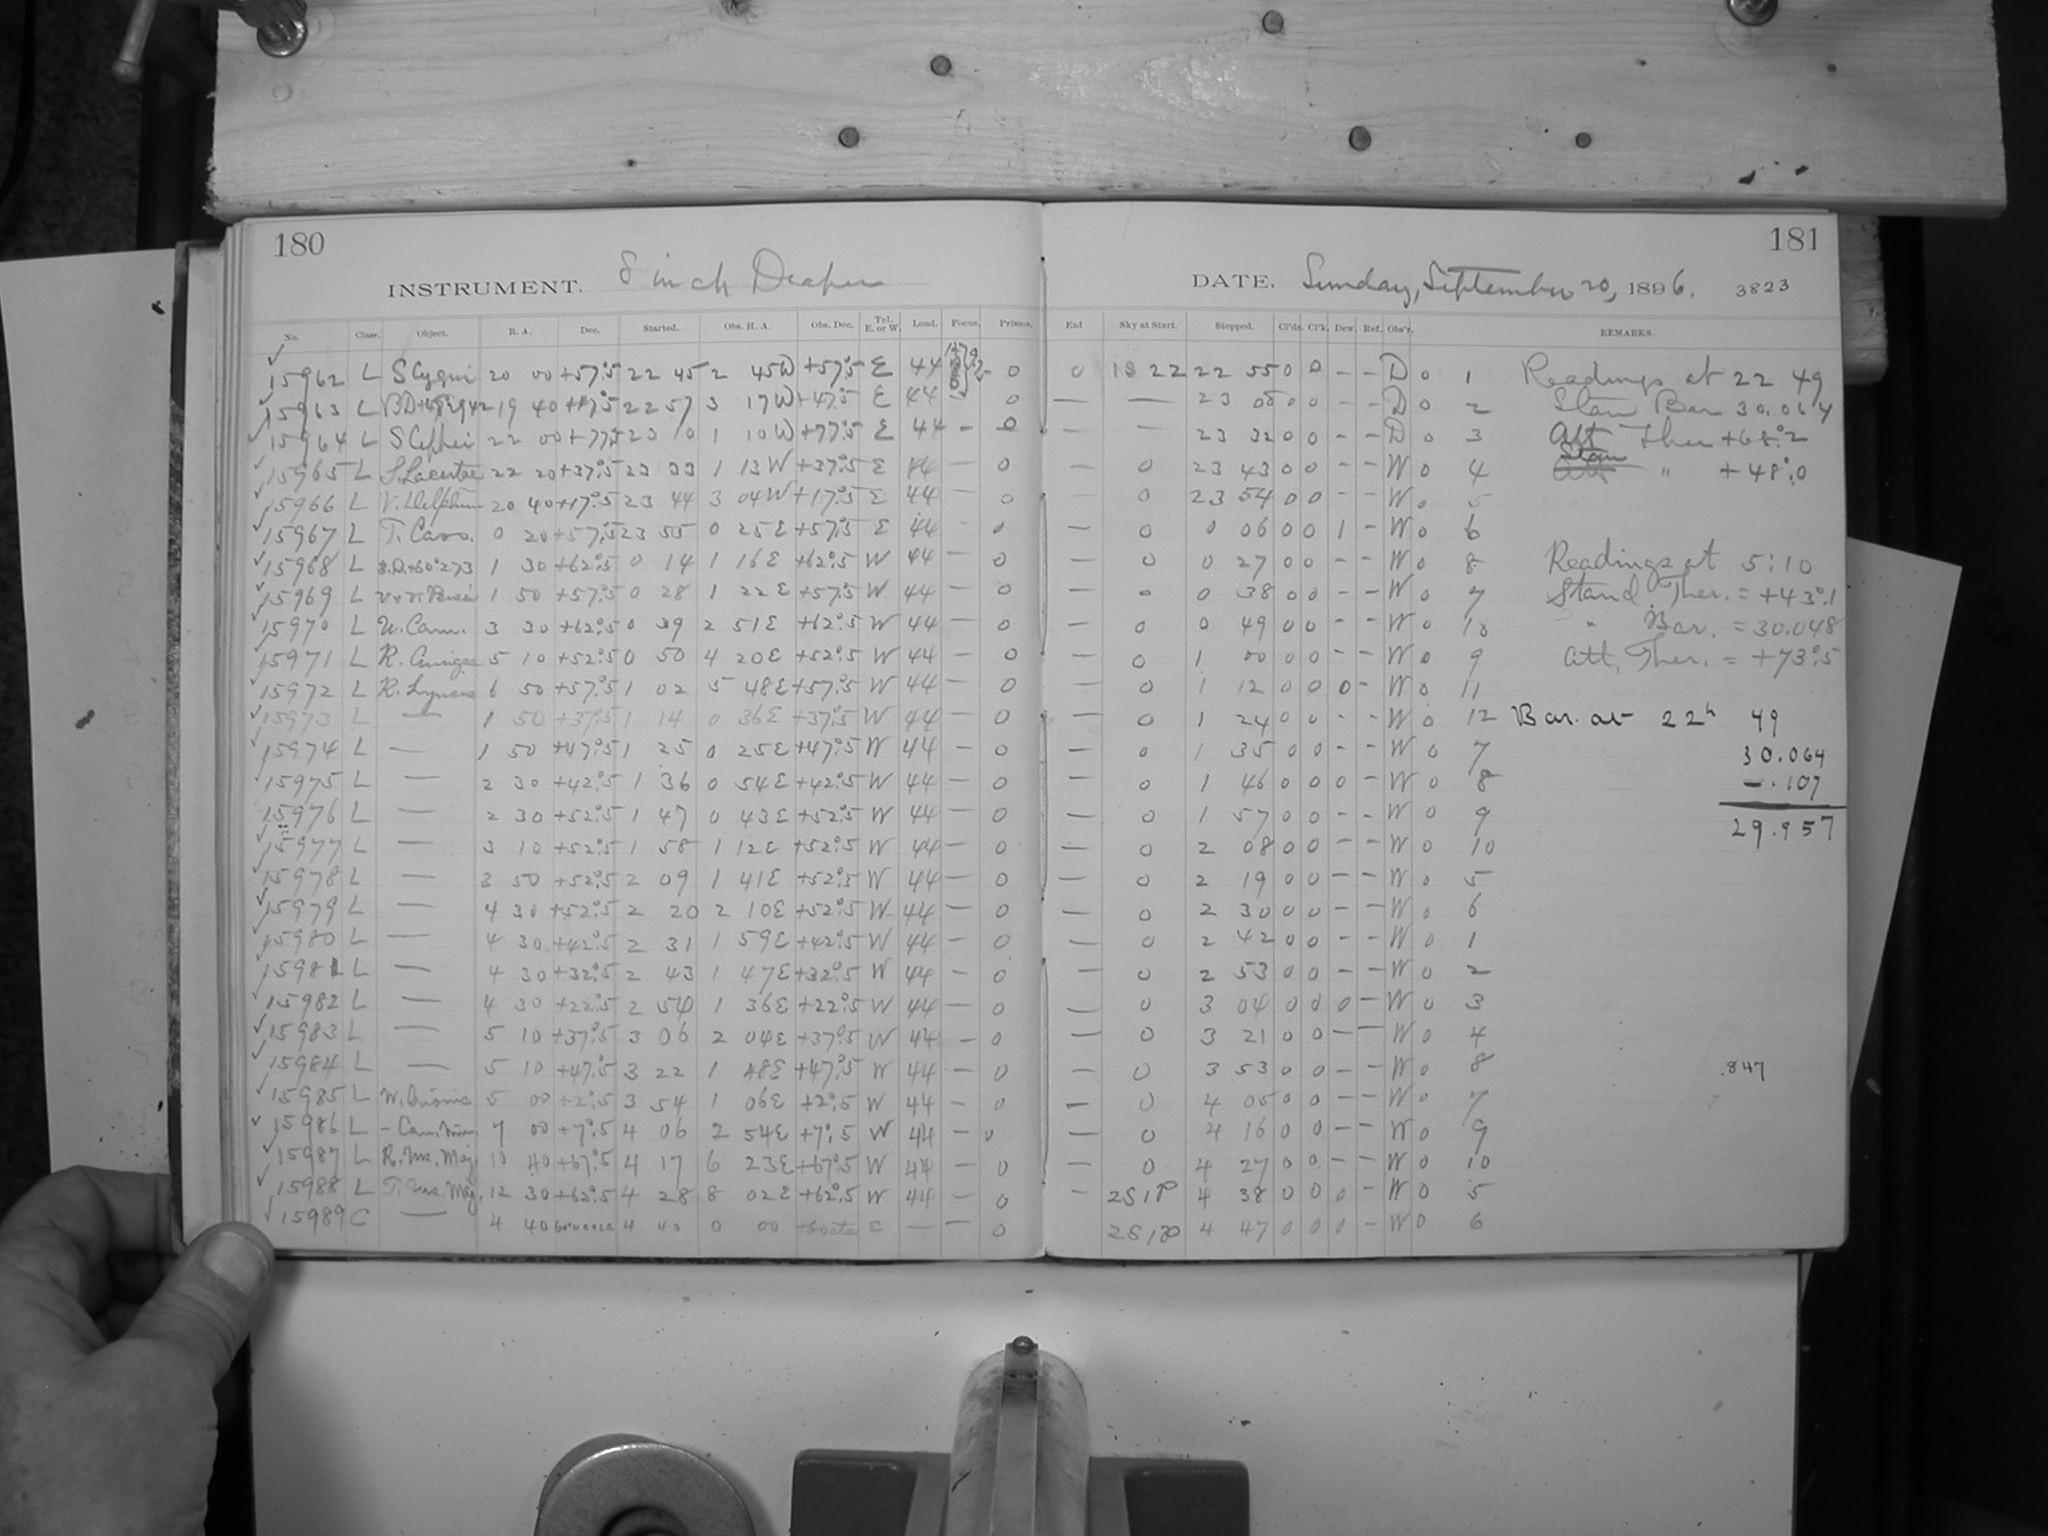 180
181
INSTRUMENT. 8 inch Draper
DATE. Sunday, September 20, 1896. 3823
No. Class. Object. R. A. Dec. Started. Obs. H. A. Obs. Dec. Tel. E. or W. Load. Focus. Prisms. Enf Sky at Start. Stopped. Cl'ds. Cl'k. Dew. Ref. Obs'r. REMARKS.
15962 L S Cygni 20 00 +57°.5 22 45 2 45W +57°.5 E 44 0 0 22 22 55 0 0 - - D 0 1 Readings at 22 49
15963 L 19 40 +47°.5 22 57 3 17W +47°.5 E 44 0 — — 23 0 0 - - D 0 2 Stan Bar 30.064
15964 L S Cephei 22 00 +77°.5 23 10 1 10W +77°.5 E 44 - 0 — — 23 32 0 0 - - D 0 3 Att Ther +68°.2
15965 L S. Lacertae 22 20 +37°.5 23 33 1 13W +37°.5 E 44 — 0 — 0 23 43 0 0 - - W 0 4 Stan " +48°.0
15966 L V. Delphini 20 40 +17°.5 23 44 3 04W +17°.5 E 44 — 0 — 0 23 54 0 0 - - W 0 5
15967 L T. Cass. 0 20 +57°.5 23 55 0 25E +57°.5 E 44 - 0 — 0 0 06 0 0 1 - W 0 6
15968 L B.D.+60°273 1 30 +62°.5 0 14 1 16E +62°.5 W 44 — 0 — 0 0 27 0 0 - - W 0 8 Readings at 5:10
15969 L 1 50 +57°.5 0 28 1 22E +57°.5 W 44 — 0 — 0 0 38 0 0 - - W 0 7 Stand. Ther. = +43°.1
15970 L U. Cam. 3 30 +62°.5 0 39 2 51E +62°.5 W 44 — 0 — 0 0 49 0 0 - - W 0 10 " Bar. = 30.048
15971 L R. Aurigae 5 10 +52°.5 0 50 4 20E +52°.5 W 44 — 0 — 0 1 00 0 0 - - W 0 9 Att. Ther. = +73°.5
15972 L R. Lyncis 6 50 +57°.5 1 02 5 48E +57°.5 W 44 — 0 — 0 1 12 0 0 0 - W 0 11
15973 L — 1 50 +37°.5 1 14 0 36E +37°.5 W 44 — 0 — 0 1 24 0 0 - - W 0 12 Bar. at 22h 49
15974 L — 1 50 +47°.5 1 25 0 25E +47°.5 W 44 — 0 — 0 1 35 0 0 - - W 0 7 30.064
15975 L — 2 30 +42°.5 1 36 0 54E +42°.5 W 44 — 0 — 0 1 46 0 0 0 - W 0 8 -.107
15976 L — 2 30 +52°.5 1 47 0 43E +52°.5 W 44 — 0 — 0 1 57 0 0 - - W 0 9 29.957
15977 L — 3 10 +52°.5 1 58 1 12E +52°.5 W 44 — 0 — 0 2 08 0 0 - - W 0 10
15978 L — 3 50 +52°.5 2 09 1 41E +52°.5 W 44 — 0 — 0 2 19 0 0 - - W 0 5
15979 L — 4 30 +52°.5 2 20 2 10E +52°.5 W 44 — 0 — 0 2 30 0 0 - - W 0 6
15980 L — 4 30 +42°.5 2 31 1 59E +42°.5 W 44 — 0 — 0 2 42 0 0 - - W 0 1
15981 L — 4 30 +32°.5 2 43 1 47E +32°.5 W 44 — 0 — 0 2 53 0 0 - - W 0 2
15982 L — 4 30 +22°.5 2 54 1 36E +22°.5 W 44 — 0 — 0 3 04 0 0 0 - W 0 3
15983 L — 5 10 +37°.5 3 06 2 04E +37°.5 W 44 — 0 — 0 3 21 0 0 - - W 0 4
15984 L — 5 10 +47°.5 3 22 1 48E +47°.5 W 44 — 0 — 0 3 53 0 0 - - W 0 8 .847
15985 L W. Orionis 5 00 +2°.5 3 54 1 06E +2°.5 W 44 — 0 — 0 4 05 0 0 - - W 0 7
15986 L - Can. Min. 7 00 +7°.5 4 06 2 54E +7°.5 W 44 — 0 — 0 4 16 0 0 - - W 0 9
15987 L R. Urs. Maj. 10 40 +67°.5 4 17 6 23E +67°.5 W 44 0 — 0 4 27 0 0 - - W 0 10
15988 L T. Urs. Maj. 12 30 +62°.5 4 28 8 02E +62°.5 W 44 — 0 - 2S1P 4 38 0 0 0 - W 0 5
15989 C — 4 40 4 40 0 00 — — 0 4 47 0 0 0 - W 0 6